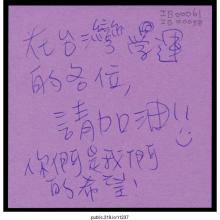 IB00061
在台灣學運
的各位,
請加油!!
你們是我們
的希望,
public.318.io/11237